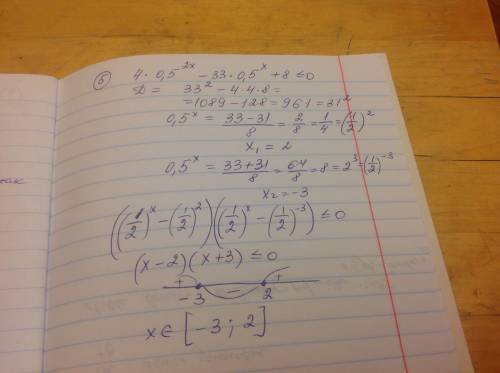 5) 4 · 0,5^{2x} - 33 · 0,5^x + 8 ≤ 0
D = 33² - 4 · 4 · 8 =
= 1089 - 128 = 961 = 31²
0,5^x = \frac{33-31}{8} = \frac{2}{8} = \frac{1}{4} = (\frac{1}{2})²
x₁ = 2
0,5^x = \frac{33+31}{8} = \frac{64}{8} = 8 = 2³ = (\frac{1}{2})^{-3}
x₂ = -3
((\frac{1}{2})^x - (\frac{1}{2})²)((\frac{1}{2})^x - (\frac{1}{2})^{-3}) ≤ 0
(x-2)(x+3) ≤ 0
+ - +
-3 2
x ∈ [-3; 2]